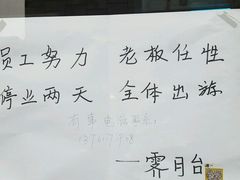 员工努力 老板任性
停业两天 全体出游
有事电话联系:
一霁月台